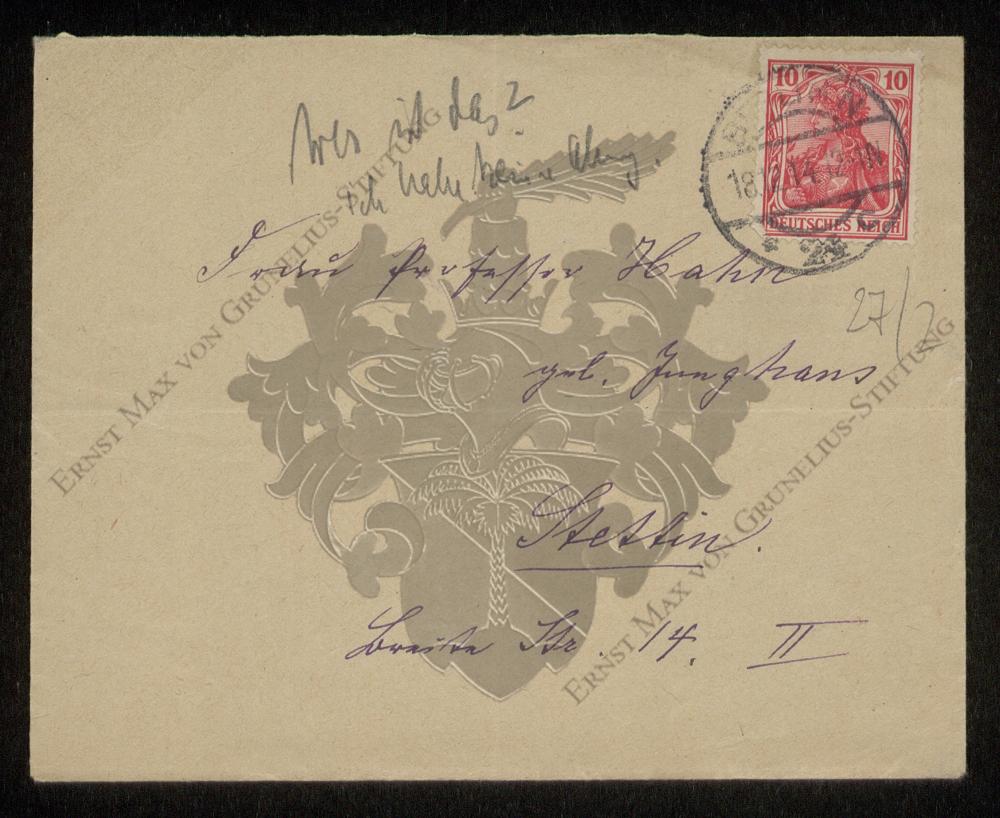 Wer ist das?
ich habe keine Ahng.
10 10
DEUTSCHES REICH
Frau Professor Hahn
27/2
geb. Junghans
Stettin.
Breite Str. 14. II
ERNST MAX VON GRUNELIUS-STIFTUNG
ERNST MAX VON GRUNELIUS-STIFTUNG